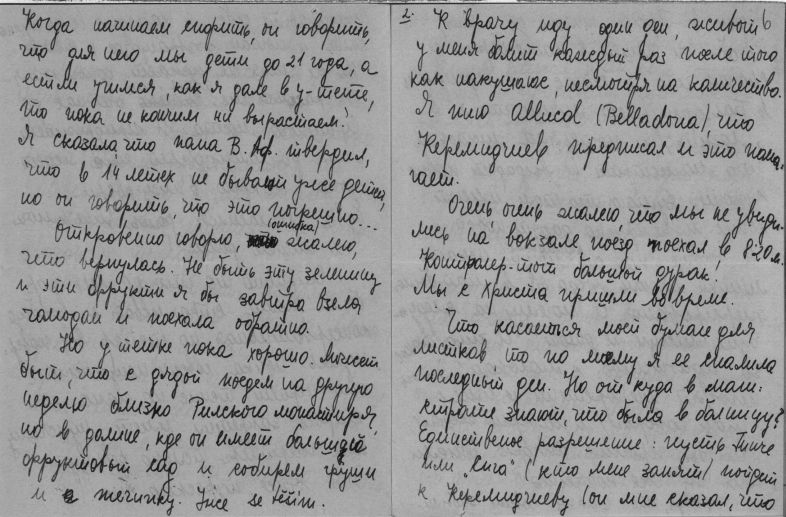 Когда начинаем спорить, он говорить,
что для него мы дети до 21 года, а
если учимся, как я даже в у-тете,
то пока не кончим ни вырастаем!
Я сказала, что папа В. Аф. твердил,
что в 14 летех не бывают уже дети,
но он говорить, что это погрешно...
(ошибка)
Откровенно говорю, жалею,
что вернулась. Не быть эту зеленину
и эти фрукти я бы завтра взела
чамодан и поехала обратно.
Но у тетке пока хорошо. Может
быть, что с дядой поедем на другую
неделю близко Рилского монастиря,
но в долине, где он имеет большой
фруктовый сад и собирем груши
и жечинку. Уже
2. К врачу иду один ден, живот
у меня болит каждый раз после того
как накушаюс, несмотря на количества.
Я пию (Belladona), что
Керемидчиев предписал и это пома-
гает.
Очень очень жалею, что мы не увиди-
лись на вокзале поезд поехал в 8·20 м.
Контролер-тот большой дурак!
Мы с Христа пришли во время.
Что касаеться моей бумаги для
листков, то по моему я ее спалила
последный ден. Но от куда в маш:
знают, что была в болницу?
Единственое разрешение: пусть
или "Кича" (кто мене занят) пойдет
к Керемидчиеву (он мне сказал, что